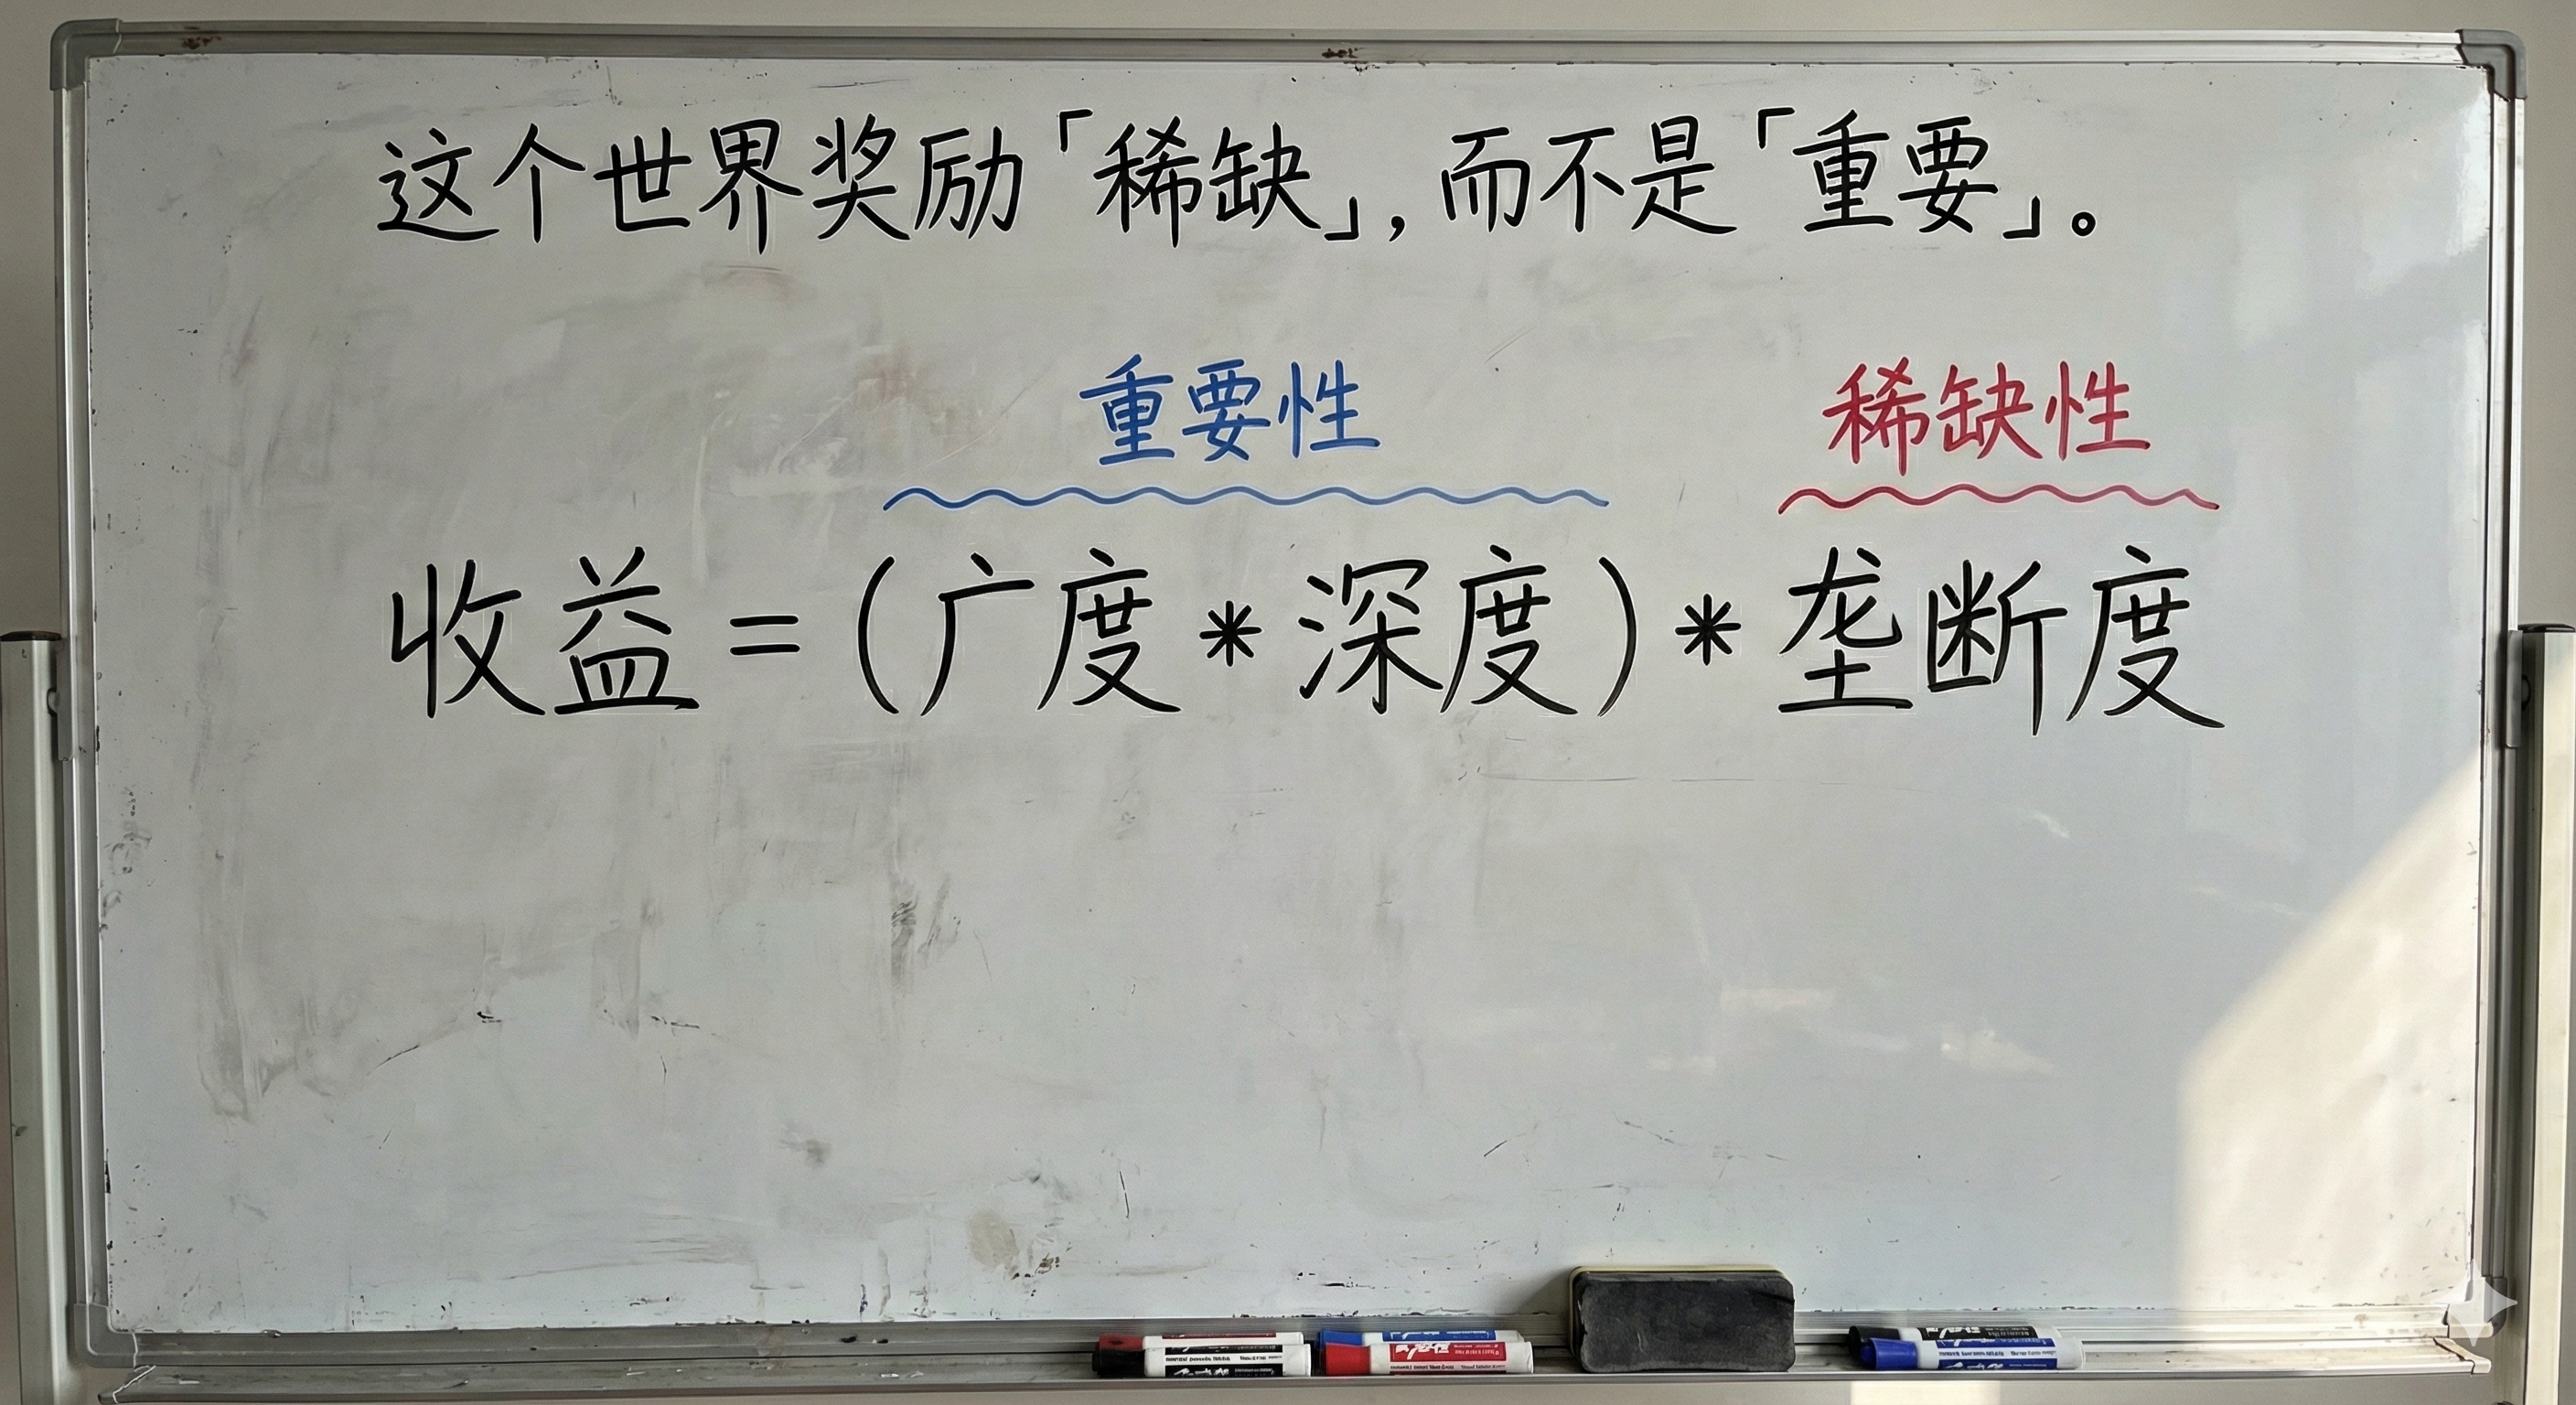 这个世界奖励「稀缺」，而不是「重要」。
重要性 稀缺性
收益=(广度*深度)*垄断度